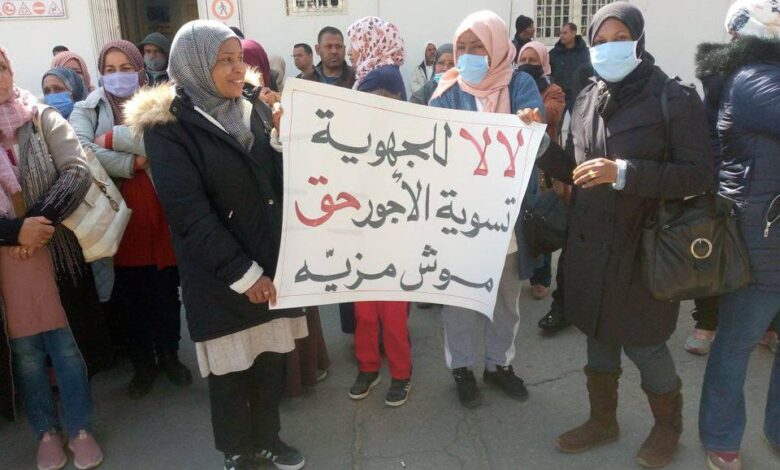 لا لا للجهوية
تسوية الأجور حق
موش مزيّه